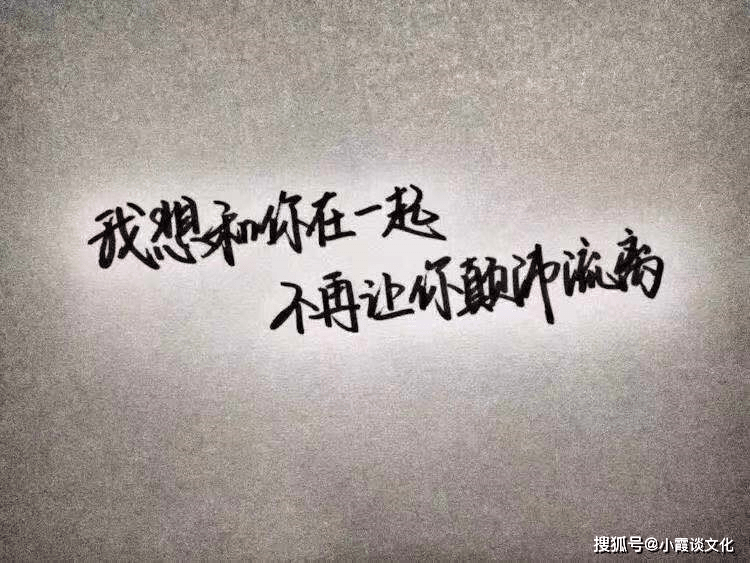 我想和你在一起
不再让你颠沛流离
搜狐号@小霞谈文化